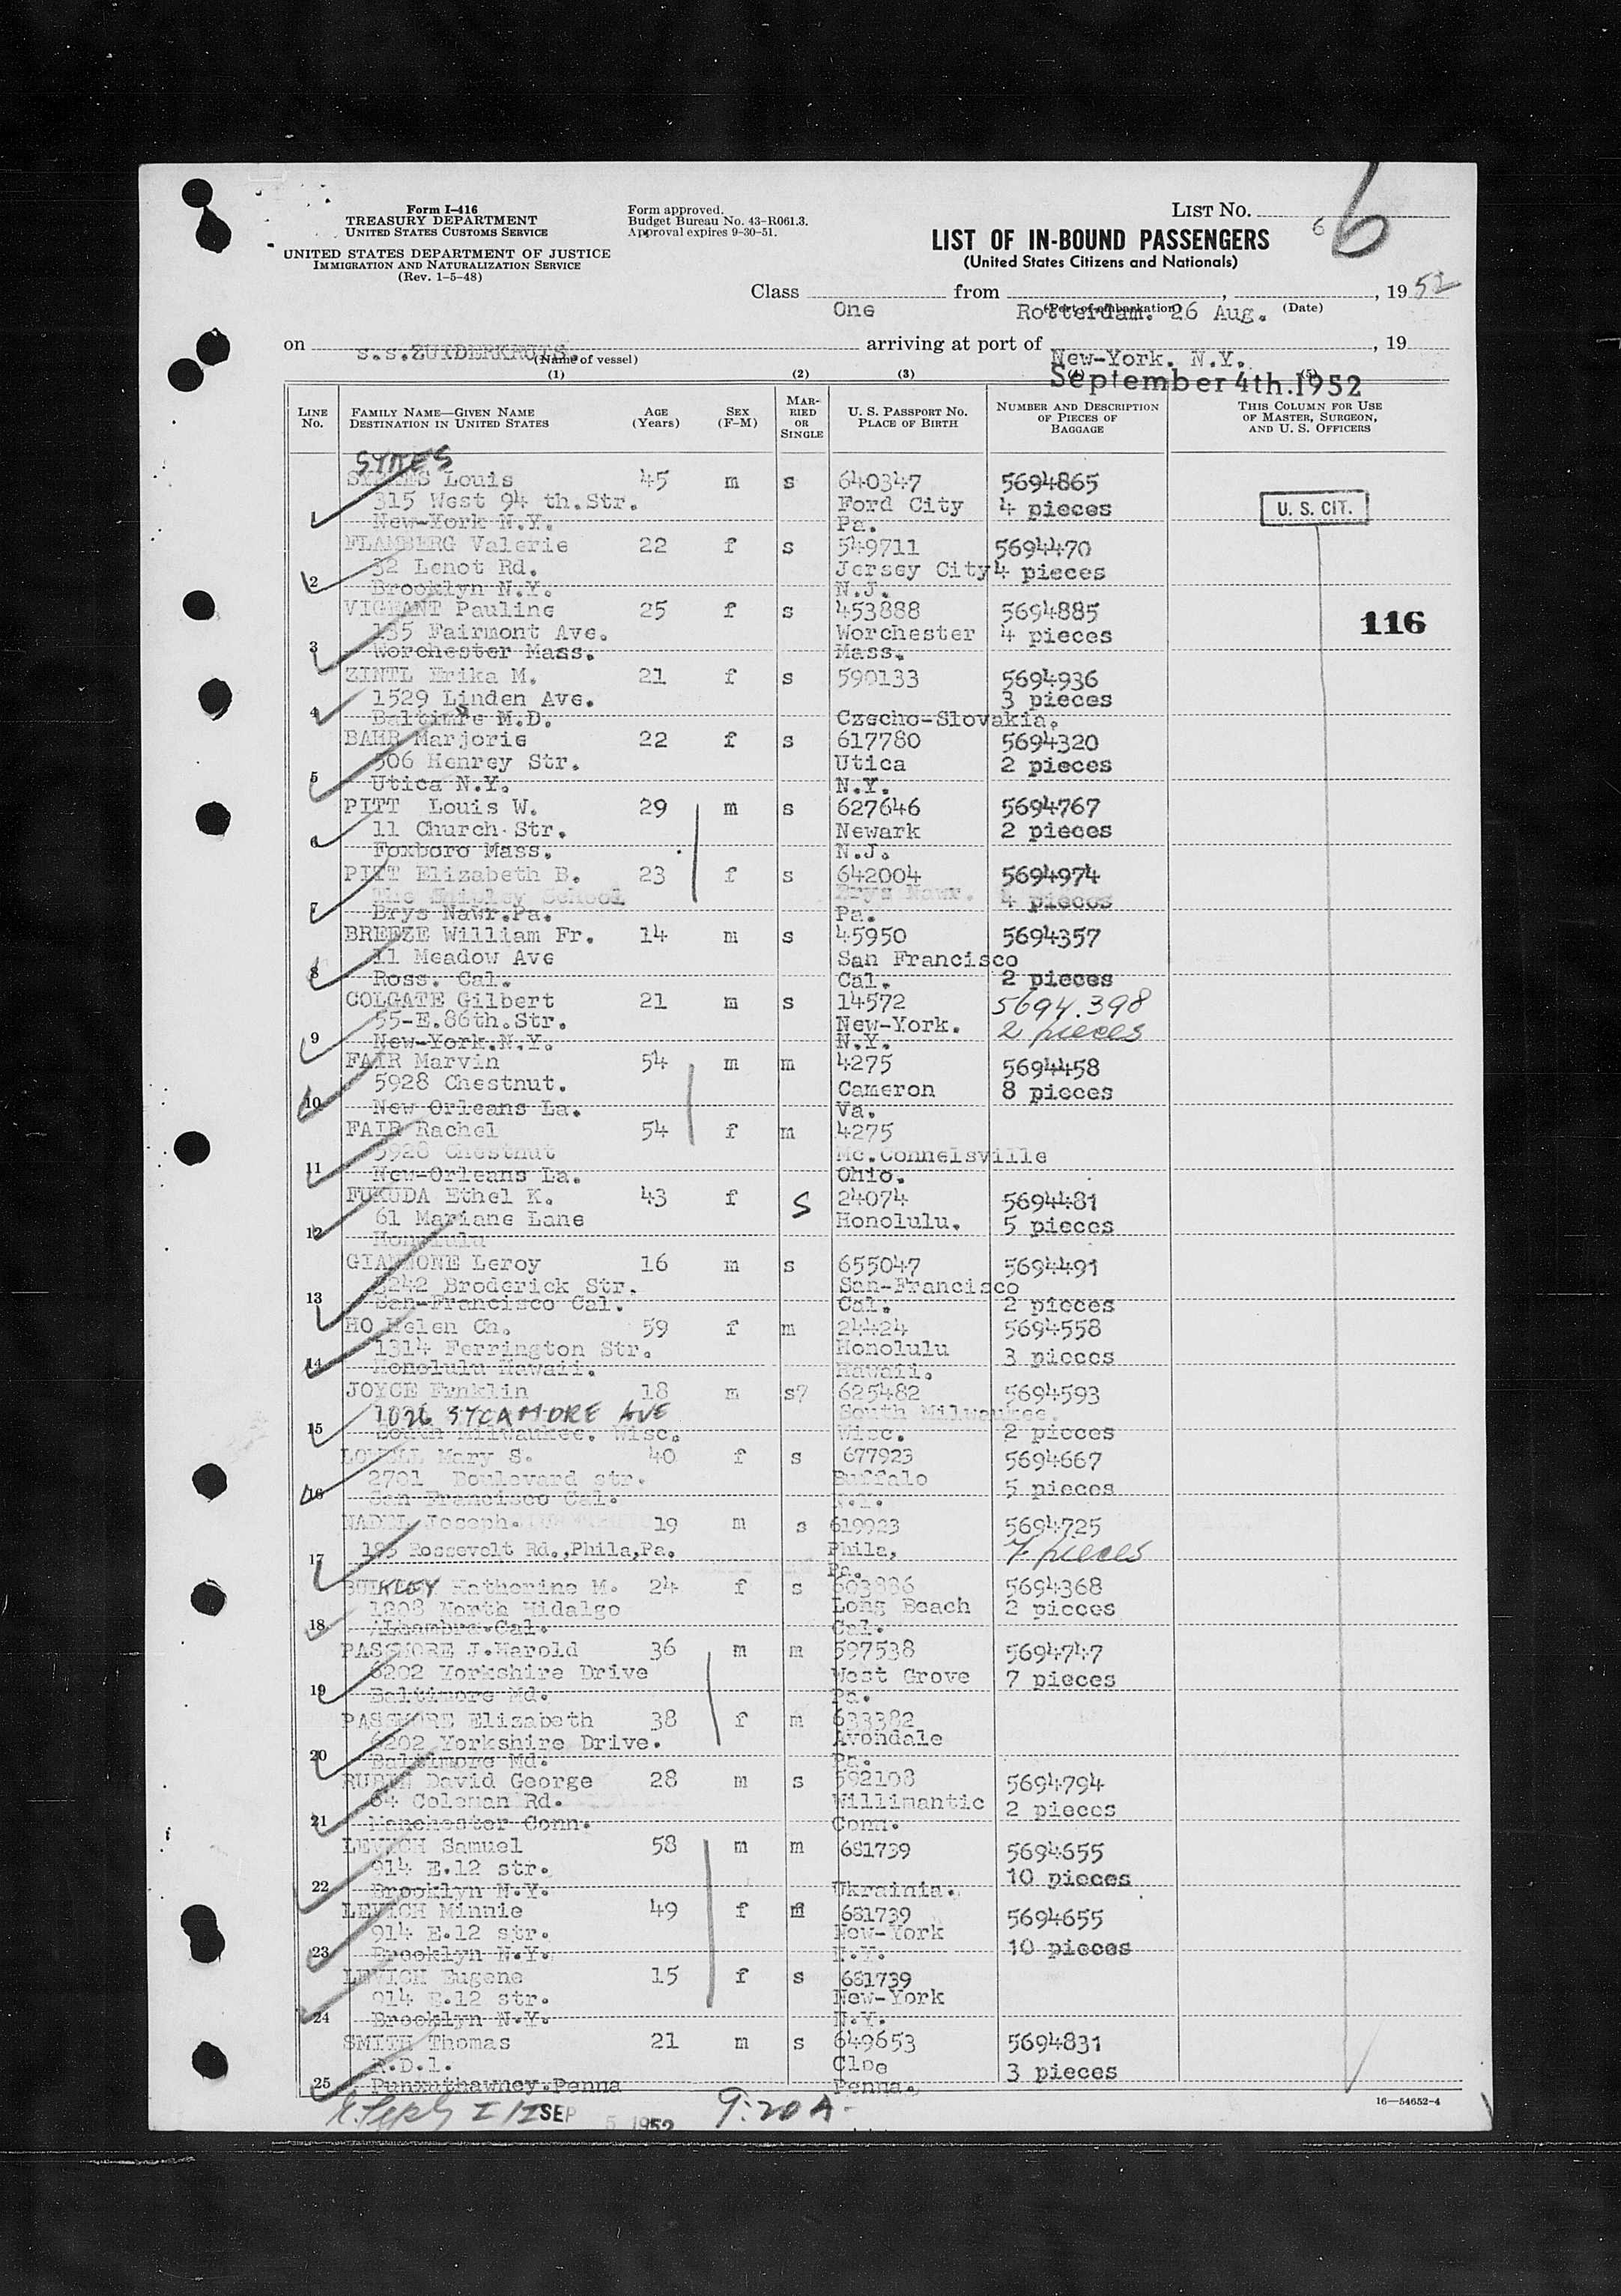 Form I-416
TREASURY DEPARTMENT
UNITED STATES CUSTOMS SERVICE
UNITED STATES DEPARTMENT OF JUSTICE
IMMIGRATION AND NATURALIZATION SERVICE
(Rev. 1-5-48)
Form approved.
Budget Bureau No. 43-R061.3.
Approval expires 9-30-51.
LIST NO. 6 6
LIST OF IN-BOUND PASSENGERS
(United States Citizens and Nationals)
Class One from Rotterdam. 26 Aug. , 1952
(Port of embarkation) (Date)
on s.s.ZUIDERKRUIS. arriving at port of New-York. N.Y. , 19
(Name of vessel)
September 4th.1952
(1) (2) (3) (4) (5)
LINE No. FAMILY NAME—GIVEN NAME DESTINATION IN UNITED STATES AGE (Years) SEX (F-M) MARRIED OR SINGLE U. S. PASSPORT NO. PLACE OF BIRTH NUMBER AND DESCRIPTION OF PIECES OF BAGGAGE THIS COLUMN FOR USE OF MASTER, SURGEON, AND U. S. OFFICERS
SYKES
Louis 45 m s 640347 5694865
315 West 94 th.Str. Ford City 4 pieces U. S. CIT.
New-York N.Y. Pa.
FLAMBERG Valerie 22 f s 549711 5694470
32 Lenot Rd. Jersey City 4 pieces
2 Brooklyn N.Y. N.J.
VIGEANT Pauline 25 f s 453888 5694885
135 Fairmont Ave. Worchester 4 pieces 116
3 Worchester Mass. Mass.
ZINTL Erika M. 21 f s 590133 5694936
1529 Linden Ave. 3 pieces
4 Baltimre M.D. Czecho-Slovakia.
BAHR Marjorie 22 f s 617780 5694320
506 Henrey Str. Utica 2 pieces
5 Utica N.Y. N.Y.
PITT Louis W. 29 m s 627646 5694767
11 Church Str. Newark 2 pieces
6 Foxboro Mass. N.J.
PITT Elizabeth B. 23 f s 642004 5694974
The Shipley School Brys Nawr. 4 pieces
7 Brys Nawr.Pa. Pa.
BREEZE William Fr. 14 m s 45950 5694357
11 Meadow Ave San Francisco
8 Ross. Cal. Cal. 2 pieces
COLGATE Gilbert 21 m s 14572 5694.398
55-E.86th.Str. New-York. 2 pieces
9 New-York.N.Y. N.Y.
FAIR Marvin 54 m m 4275 5694458
5928 Chestnut. Cameron 8 pieces
10 New Orleans La. Va.
FAIR Rachel 54 f m 4275
5928 Chestnut Mc.Connelsville
11 New-Orleans La. Ohio.
FUKUDA Ethel K. 43 f S 24074 5694481
61 Mariane Lane Honolulu. 5 pieces
12 Honolulu
GIANNONE Leroy 16 m s 655047 5694491
3242 Broderick Str. San-Francisco
13 San-Francisco Cal. Cal. 2 pieces
HO Helen Ch. 59 f m 24424 5694558
1314 Ferrington Str. Honolulu 3 pieces
14 Honolulu Hawaii. Hawaii.
JOYCE Frnklin 18 m s? 625482 5694593
1026 SYCAMORE AVE South Milwaukee.
15 South Milwaukee. Wisc. Wisc. 2 pieces
LOWELL Mary S. 40 f s 677923 5694667
2701 Boulevard str. Buffalo 5 pieces
16 San Francisco Cal. N.Y.
NADEL Joseph. 19 m s 619923 5694725
Roosevelt Rd.,Phila,Pa. Phila, 7 pieces
17 Pa.
BULKLEY Katherine M. 24 f s 603886 5694368
1808 North Hidalgo Long Beach 2 pieces
18 Alhambra.Cal. Cal.
PASSMORE J.Harold 36 m m 597538 5694747
6202 Yorkshire Drive West Grove 7 pieces
19 Baltimore Md. Pa.
PASSMORE Elizabeth 38 f m 633382
6202 Yorkshire Drive. Avondale
20 Baltimore Md. Pa.
RUBIN David George 28 m s 592108 5694794
64 Coleman Rd. Willimantic 2 pieces
21 Manchester Conn. Conn.
LEVICH Samuel 58 m m 681739 5694655
914 E.12 str. 10 pieces
22 Brooklyn N.Y. Ukrainia.
LEVICH Minnie 49 f m 681739 5694655
914 E.12 str. New-York
23 Brooklyn N.Y. N.Y. 10 pieces
LEVICH Eugene 15 f s 681739
914 E.12 str. New-York
24 Brooklyn N.Y. N.Y.
SMITH Thomas 21 m s 649653 5694831
R.D.1. Cloe 3 pieces
25 Punxathawney.Penna Penna.
SEP 5 1952 9:20 A.
16—54652-4